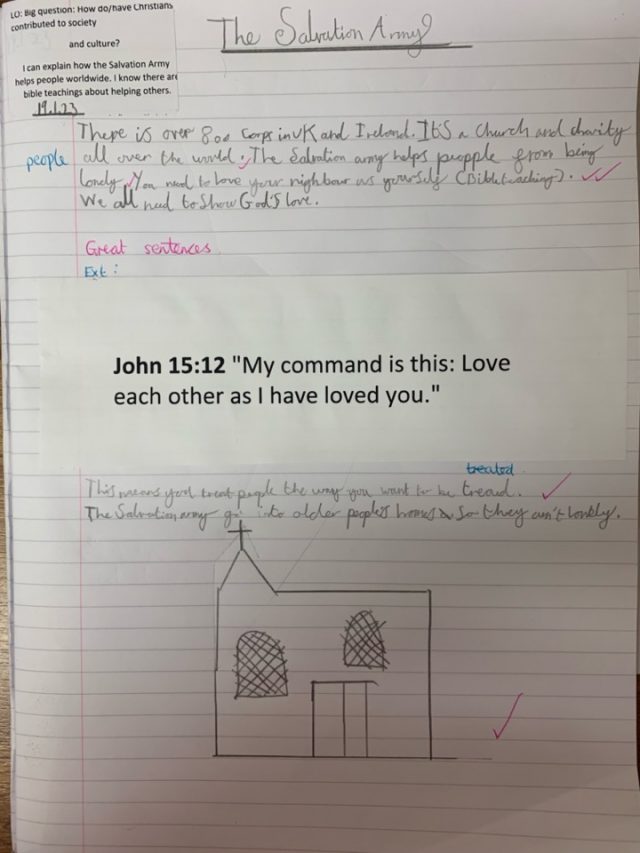 LO: Big question: How do/have Christians
contributed to society
and culture?
I can explain how the Salvation Army
helps people worldwide. I know there are
bible teachings about helping others.
19.1.23
The Salvation Army
There is over 800 Corps in UK and Ireland. It's a Church and charity
people all over the world. The Salvation army helps peopple from being
lonely. You need to love your nighbour as yourself (Bible teaching).
We all need to show God's love.
Great sentences
Ext:
John 15:12 "My command is this: Love
each other as I have loved you."
treated
This means you treat people the way you want to be tread.
The Salvation army go into older people's homes so they ain't lonbly.